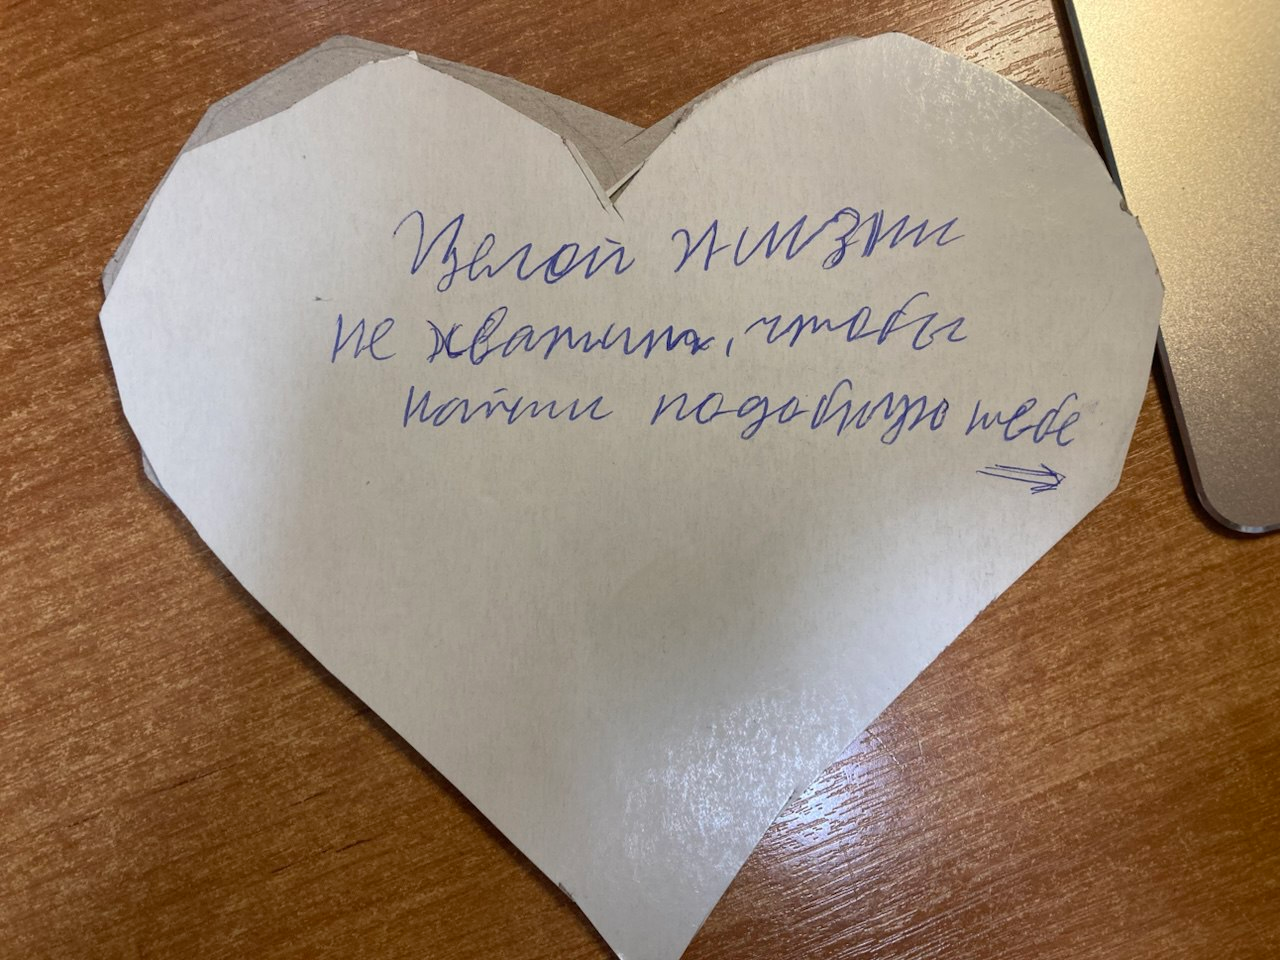 Целой жизни
не хватит, чтобы
найти подобную тебе